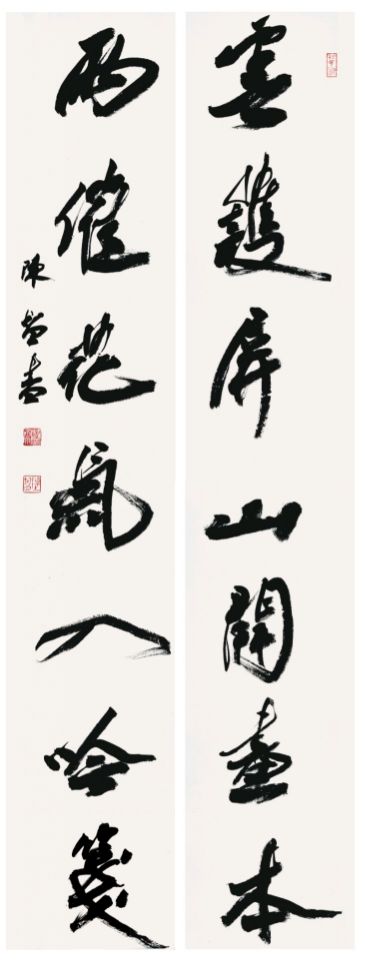 雲護屏山開畫本
雨催花氣入吟箋
陳 書